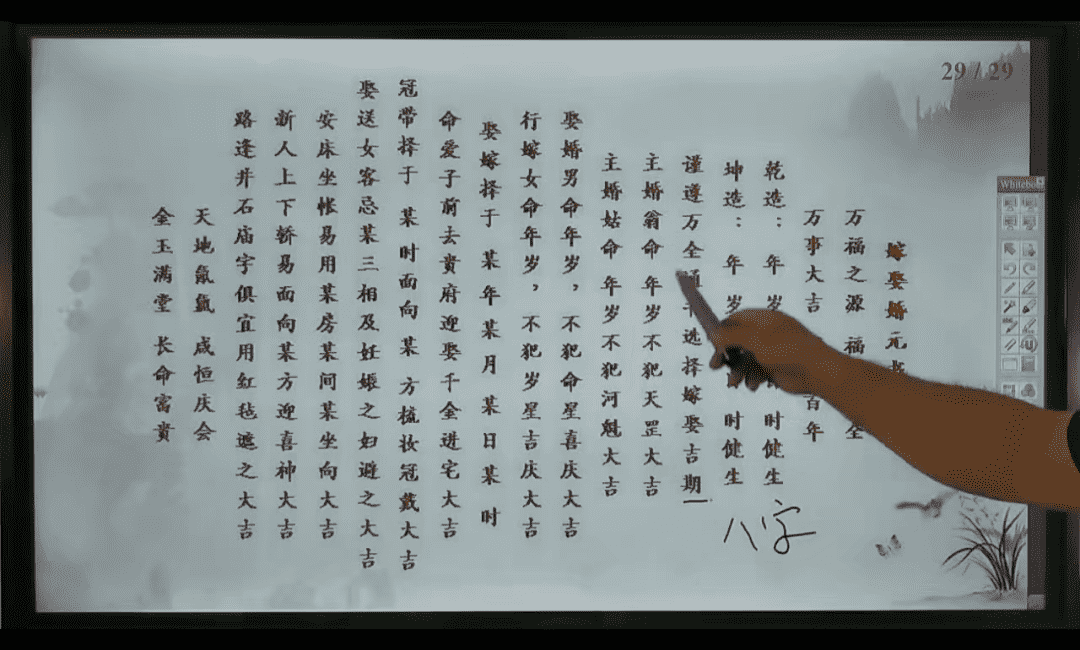 29 / 29
嫁娶婚元书
万福之源 福 全
万事大吉 百年
乾造： 年 岁 时健生
坤造： 年 岁 时健生
谨遵万全 选择嫁娶吉期
主婚翁命 年岁不犯天罡大吉
主婚姑命 年岁不犯河魁大吉
娶婚男命年岁，不犯命星喜庆大吉
行嫁女命年岁，不犯岁星吉庆大吉
娶嫁择于 某年某月某日某时
命爱子前去贵府迎娶千金进宅大吉
冠带择于 某时面向 某 方梳妆冠戴大吉
娶送女客忌某三相及妊娠之妇避之大吉
安床坐帐易用某房某间某坐向大吉
新人上下轿易面向某方迎喜神大吉
路逢井石庙宇俱宜用红毡遮之大吉
天地氤氲 咸恒庆会
金玉满堂 长命富贵
八字